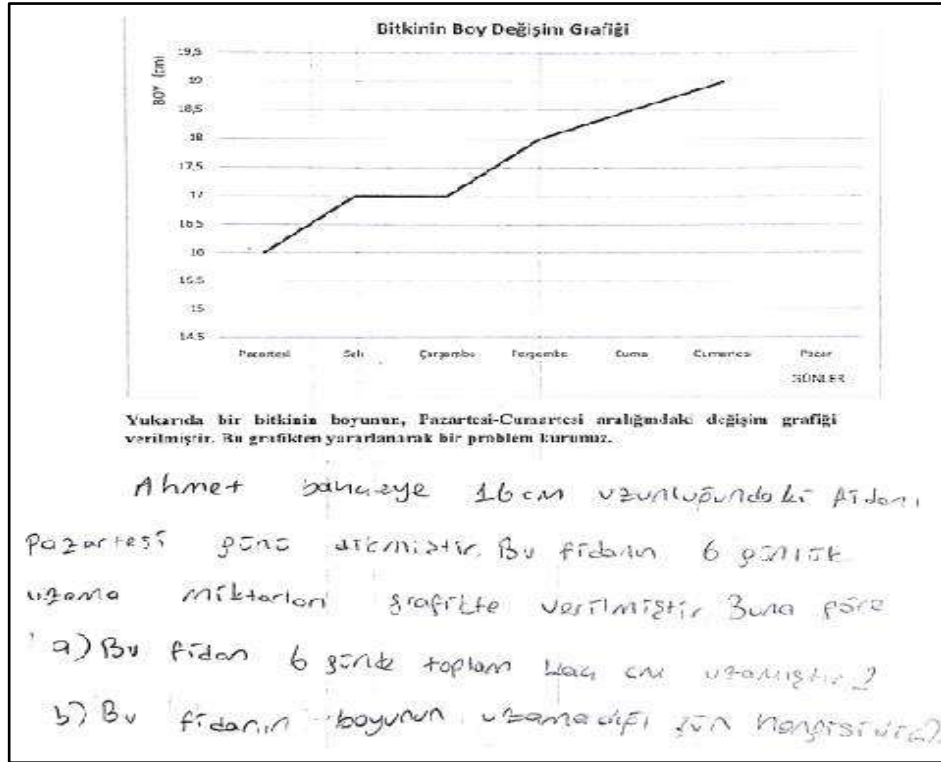 Bitkinin Boy Değişim Grafiği
BOY (cm)
19,5
19
18,5
18
17,5
17
16,5
16
15,5
15
14,5
Pazartesi Salı Çarşamba Perşembe Cuma Cumartesi Pazar
GÜNLER
Yukarıda bir bitkinin boyunun, Pazartesi-Cumartesi aralığındaki değişim grafiği
verilmiştir. Bu grafikten yararlanarak bir problem kurunuz.
Ahmet bahçeye 16 cm uzunluğundaki fidanı
Pazartesi günü dikmiştir. Bu fidanın 6 günlük
uzama miktarları grafikte verilmiştir Buna göre
a) Bu fidan 6 günde toplam kaç cm uzamıştır?
b) Bu fidanın boyunun uzamadığı gün hangisidir?